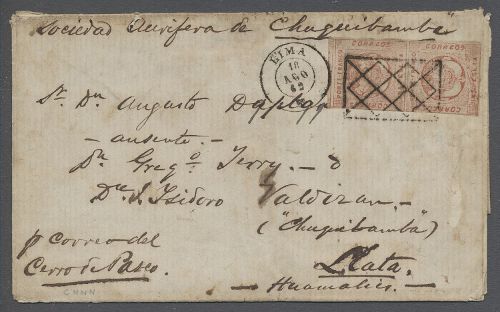 Sociedad Aurifera de "Chuquibamba"
LIMA
18
AGO
62
CORREOS
CORREOS
PORTE FRANCO
Sr. Dn Augusto
— ausente. —
Dn Gregº Terry. — ó
Dn J. Isidoro Valdizan. —
("Chuquibamba")
p correo del
Cerro de Pasco.
Llata.
— Huamalies. —